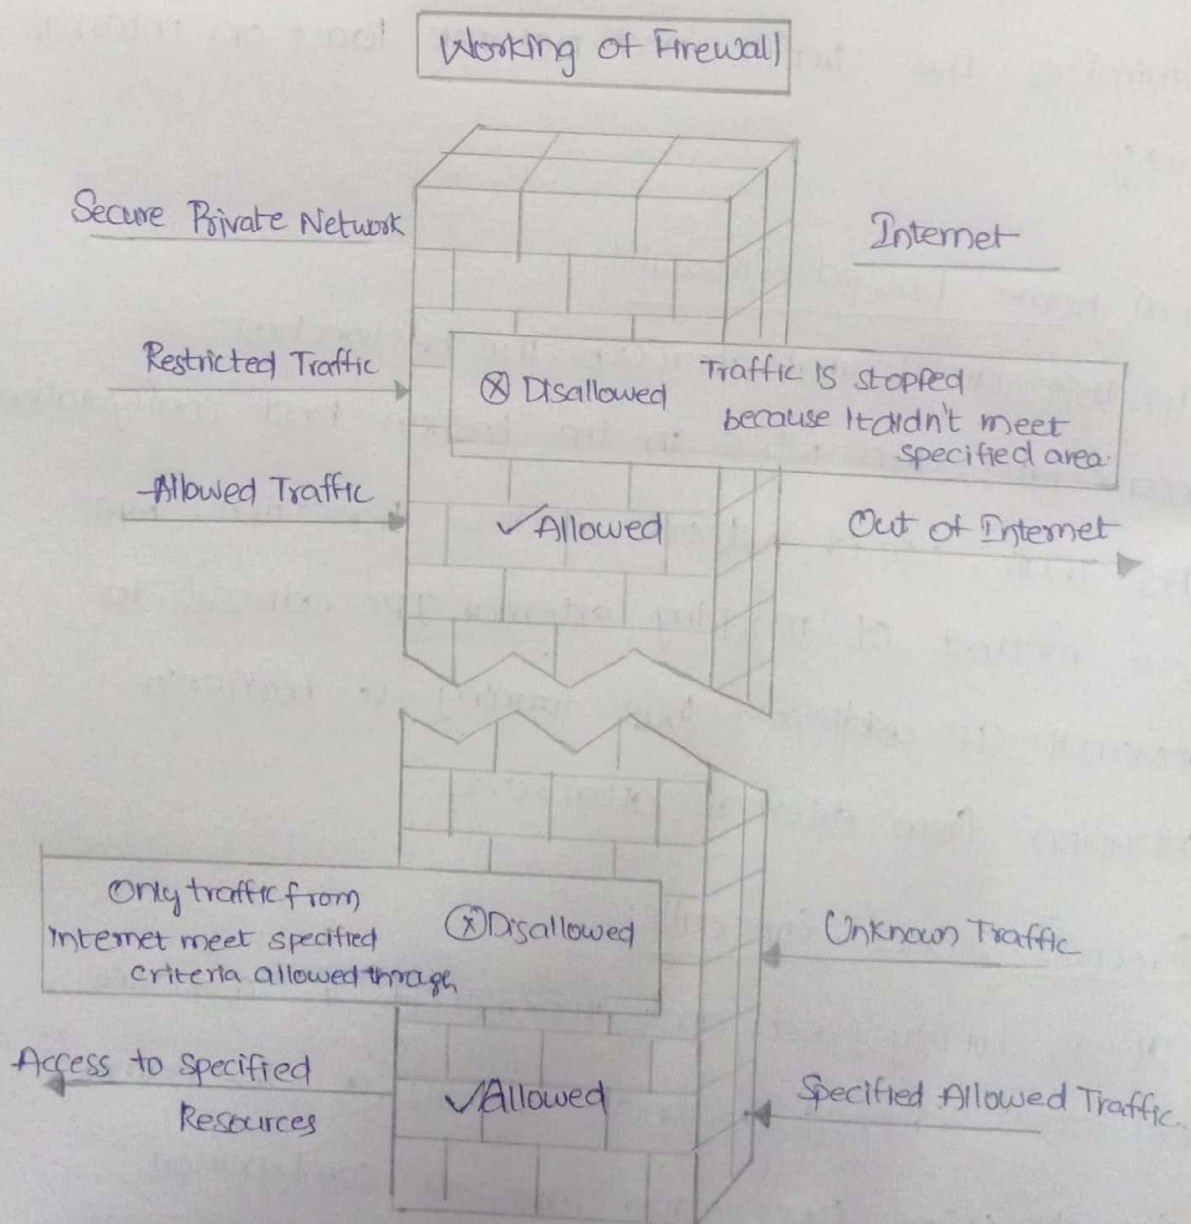 Working of Firewall
Secure Private Network
Internet
Restricted Traffic
Ⓧ Disallowed
Traffic is stopped
because it didn't meet
specified area.
Allowed Traffic
✓Allowed
Out of Internet
Only traffic from
internet meet specified
criteria allowed through
Ⓧ Disallowed
Unknown Traffic
Access to specified
Resources
✓Allowed
Specified Allowed Traffic.